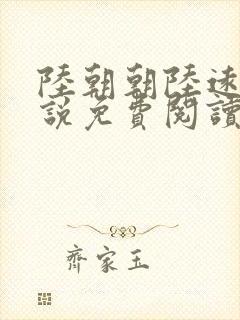 陸朝朝陸遠
說免費閱讀
齊家玉